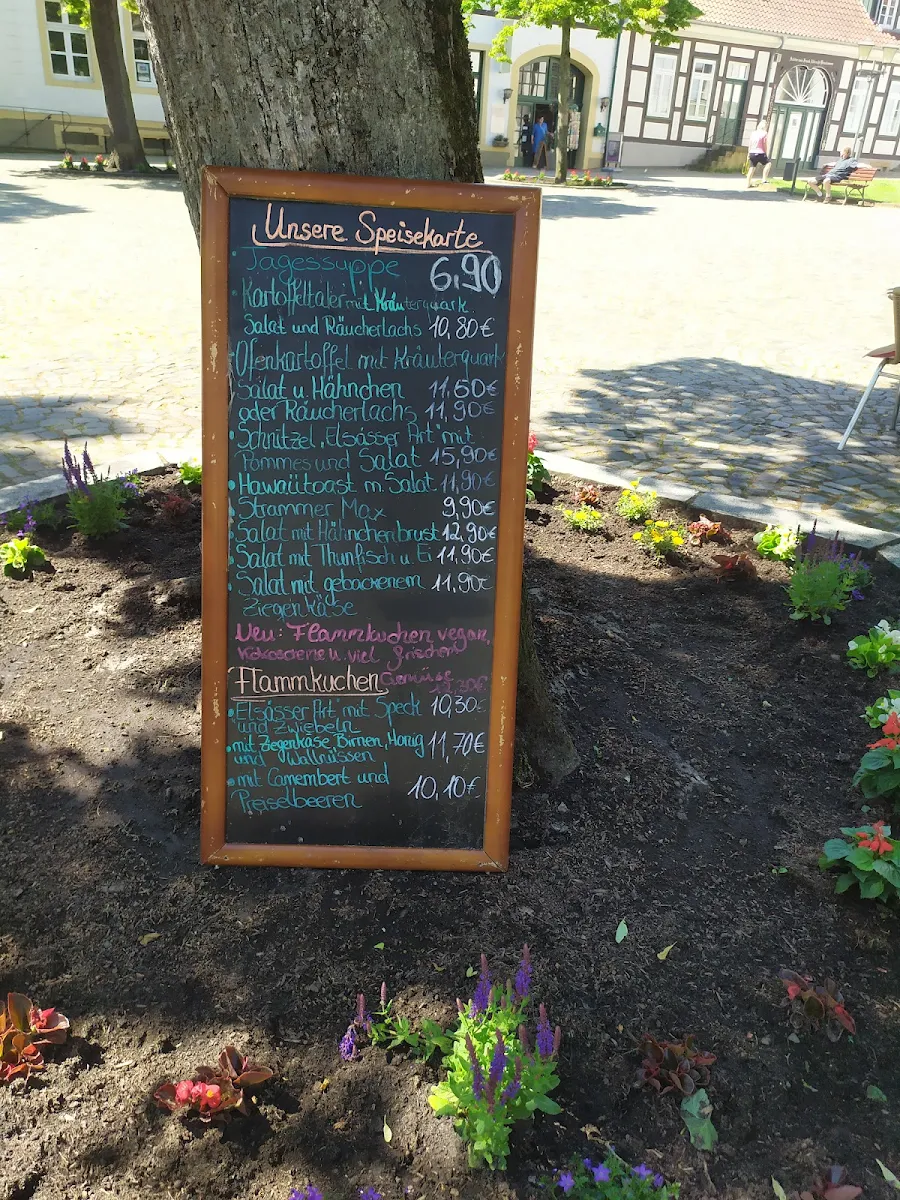 Unsere Speisekarte
Tagessuppe 6,90
Kartoffeltaler mit Kräuterquark
Salat und Räucherlachs 10,80€
Ofenkartoffel mit Kräuterquark
Salat u. Hähnchen 11,60€
oder Räucherlachs 11,90€
Schnitzel „Elsässer Art" mit
Pommes und Salat 15,90€
Hawaiitoast m. Salat 11,90€
Strammer Max 9,90€
Salat mit Hähnchenbrust 12,90€
Salat mit Thunfisch u. Ei 11,90€
Salat mit gebackenem 11,90€
Ziegenkäse
Neu: Flammkuchen vegan,
Kokoscreme u. viel frischem
Flammkuchen Gemüse
„Elsässer Art" mit Speck 10,30€
und Zwiebeln
mit Ziegenkäse, Birnen, Honig 11,70€
und Wallnüssen
mit Camembert und 10,10€
Preiselbeeren